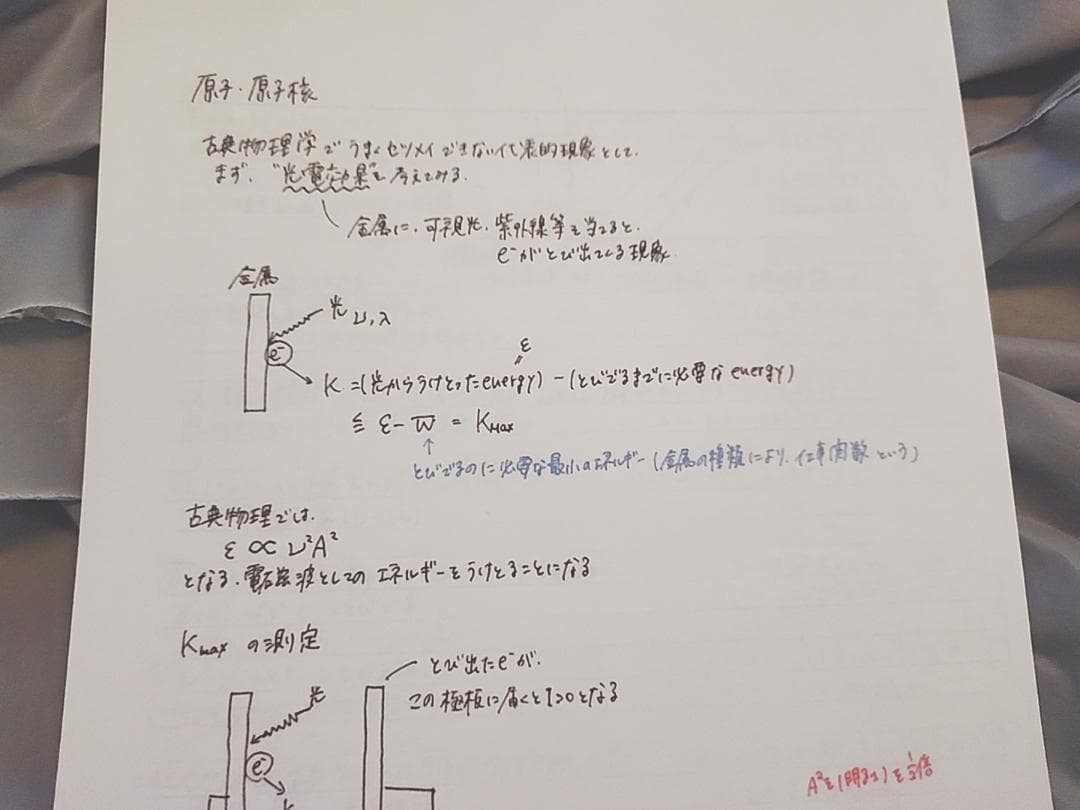 原子・原子核
古典物理学でうまくセツメイできない代表的現象として、
まず、"光電効果"を考えてみる。
金属に、可視光、紫外線等を当てると、
e⁻がとび出てくる現象
金属
光 ν,λ
e⁻
ε
K =(光からうけとったenergy) - (とびでるまでに必要なenergy)
≦ ε - W = KMax
↑
とびでるのに必要な最小のエネルギー(金属の種類により、仕事関数という)
古典物理では、
ε ∝ ν²A²
となる、電磁波としてのエネルギーをうけとることになる
Kmax の測定
とび出たe⁻が、
光
この極板に届くと I>0 となる
e⁻
A²を(明るさ)を1/2倍